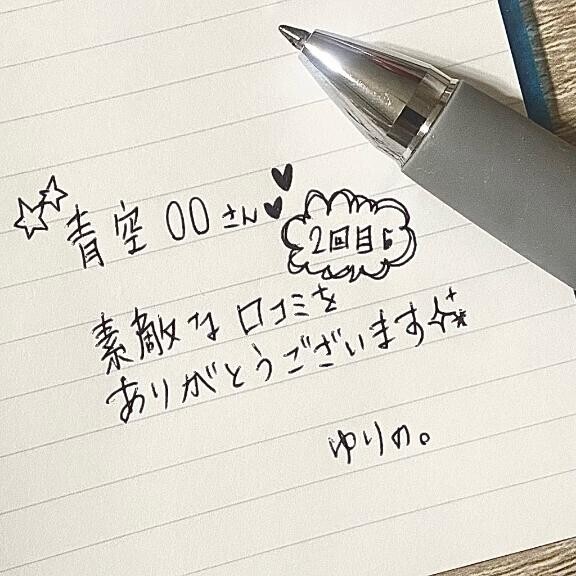 青空〇〇さん
2回目
素敵な口コミを
ありがとうございます
ゆりの。